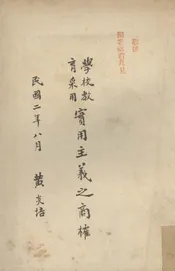 學校教
育采用
實用主義之商榷
民國二年八月
黄炎培